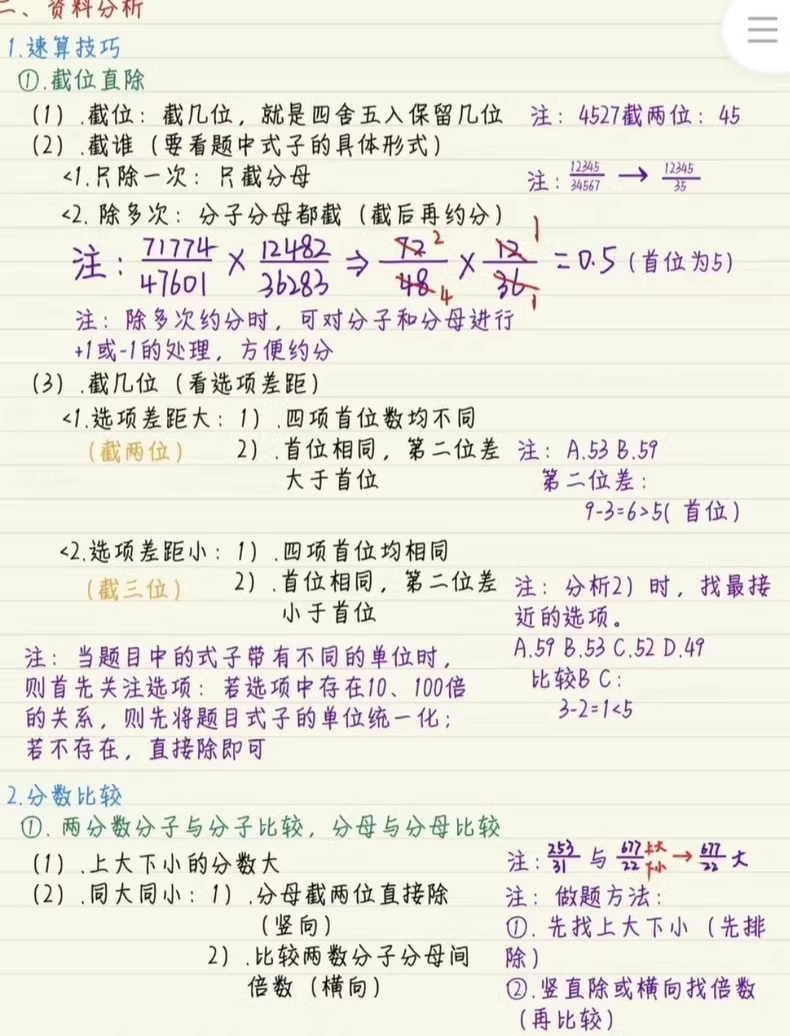 二、资料分析
1.速算技巧
①.截位直除
(1).截位：截几位，就是四舍五入保留几位 注：4527截两位：45
(2).截谁（要看题中式子的具体形式）
<1.只除一次：只截分母 注：12345/34567 → 12345/35
<2.除多次：分子分母都截（截后再约分）
注：71774/47601 × 12482/36283 ⇒ 72/48 × 12/36 = 0.5（首位为5）
2 4 1 1
注：除多次约分时，可对分子和分母进行
+1或-1的处理，方便约分
(3).截几位（看选项差距）
<1.选项差距大：1).四项首位数均不同
（截两位） 2).首位相同，第二位差 注：A.53 B.59
大于首位 第二位差：
9-3=6>5(首位)
<2.选项差距小：1).四项首位均相同
（截三位） 2).首位相同，第二位差 注：分析2)时，找最接
小于首位 近的选项。
A.59 B.53 C.52 D.49
比较B C：
3-2=1<5
注：当题目中的式子带有不同的单位时，
则首先关注选项：若选项中存在10、100倍
的关系，则先将题目式子的单位统一化；
若不存在，直接除即可
2.分数比较
①.两分数分子与分子比较，分母与分母比较
(1).上大下小的分数大 注：253/31 与 677/22 上大下小 → 677/22 大
(2).同大同小：1).分母截两位直接除 注：做题方法：
（竖向） ①.先找上大下小（先排
2).比较两数分子分母间 除）
倍数（横向） ②.竖直除或横向找倍数
（再比较）